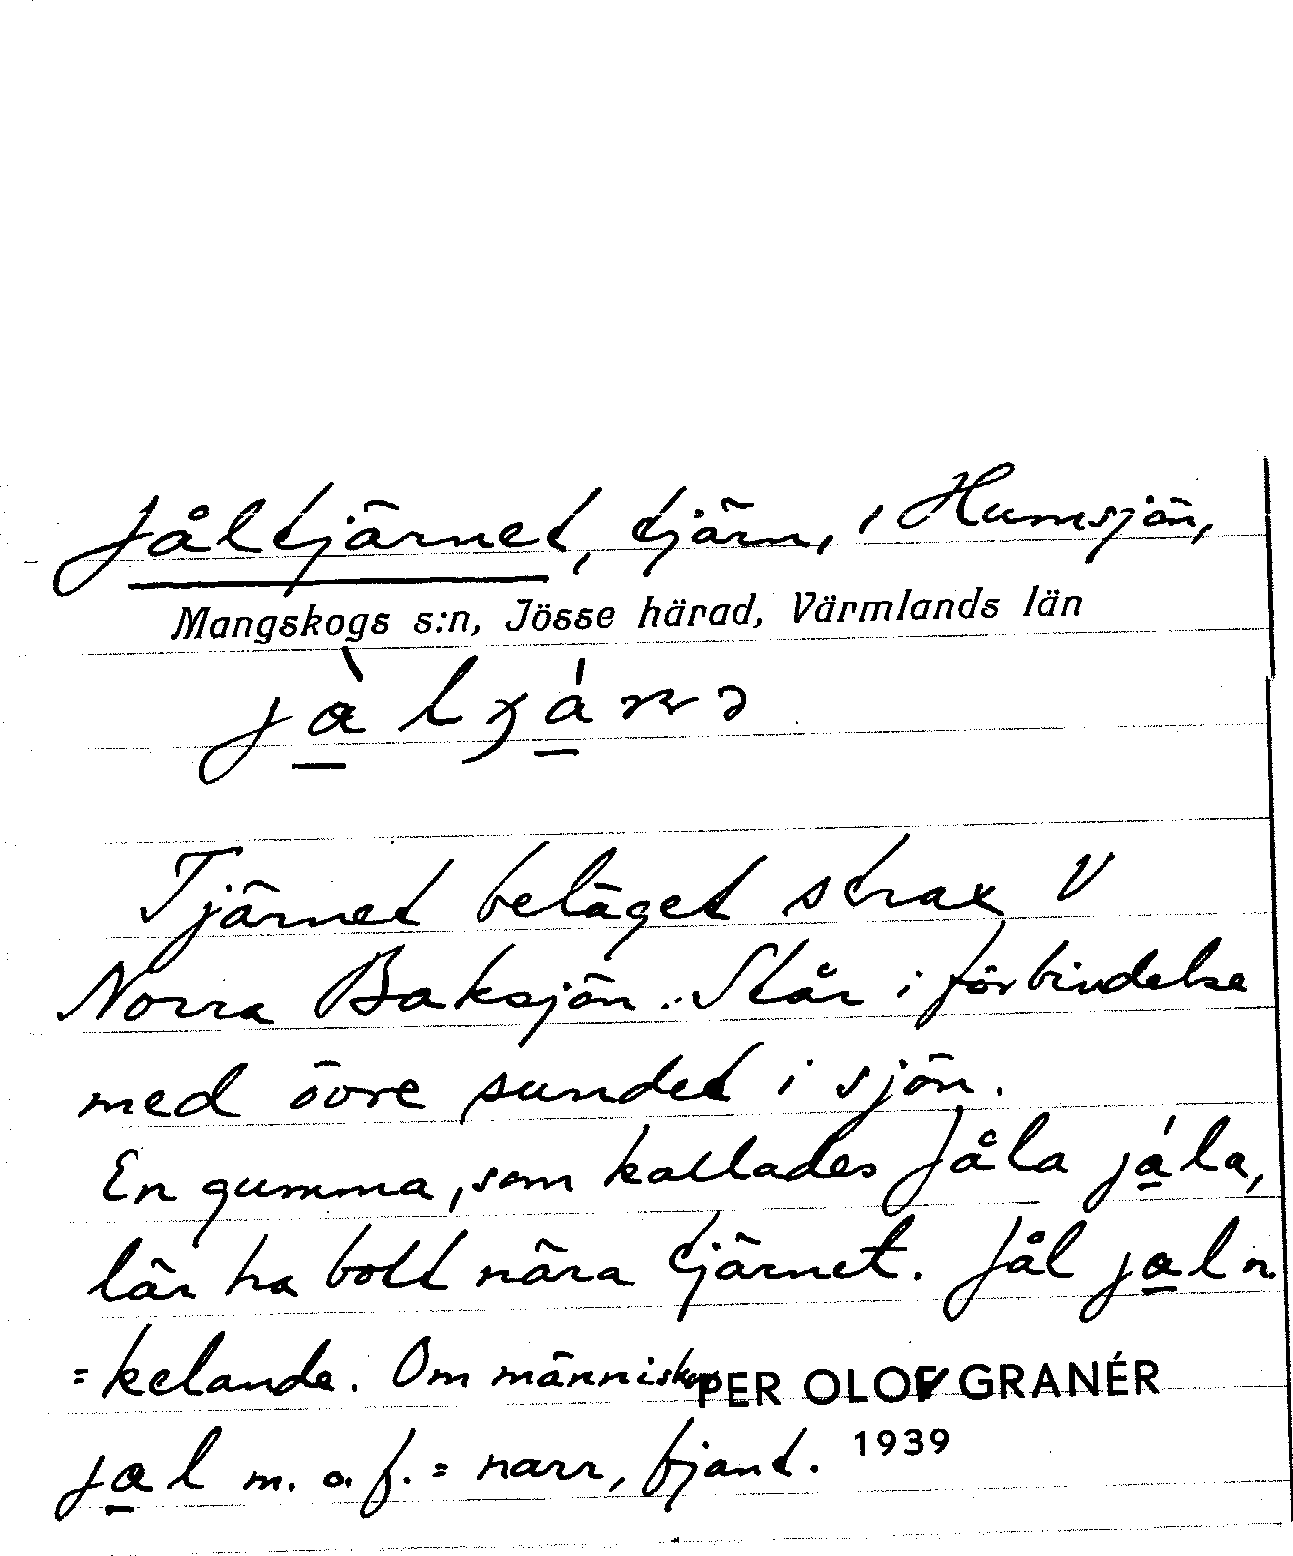 Jåltjärnet, tjärn, i Humsjön,
Mangskogs s:n, Jösse härad, Värmlands län
Tjärnet beläget strax V
Norra Baksjön. Står i förbindelse
med övre sundet i sjön.
En gumma, som kallades Jåla ja̱´la,
lär ha bott nära tjärnet. Jål ja̱l n.
= kelande. Om människor
ja̱l m. o. f. = narr, fjant.
PER OLOF GRANÉR
1939